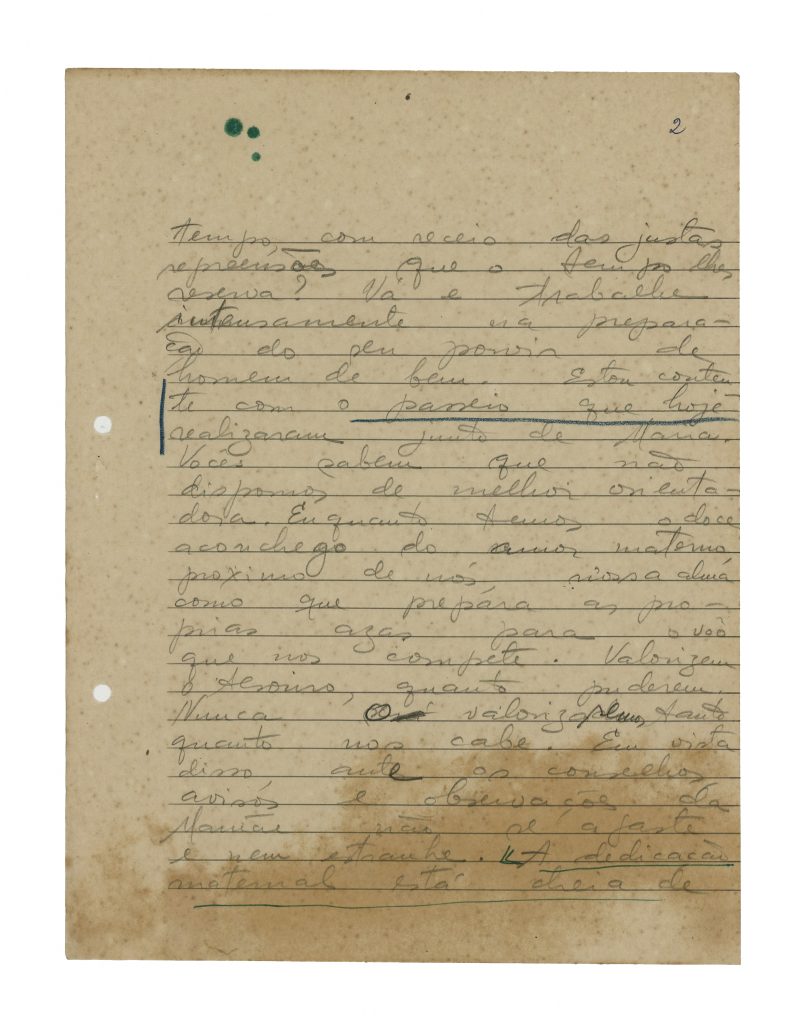 2
tempo, com receio das justas
repreensões que o tempo lhes
reserva? Vá e trabalhe
intensamente na prepara-
ção do seu porvir de
homem de bem. Estou conten
te com o passeio que hoje
realizaram junto de Maria.
Vocês sabem que não
dispomos de melhor orienta-
dora. Enquanto temos o doce
aconchego do amor materno
proximo de nós, nossa alma
como que prepára as pro-
prias azas para o vôo
que nos compete. Valorizem
o tesouro, quanto puderem.
Nunca valorizaremos tanto
quanto nos cabe. Em vista
disso, ante os conselhos,
avisos e observações da
Mamãe não se afaste
e nem estranhe. "A dedicação
maternal está cheia de